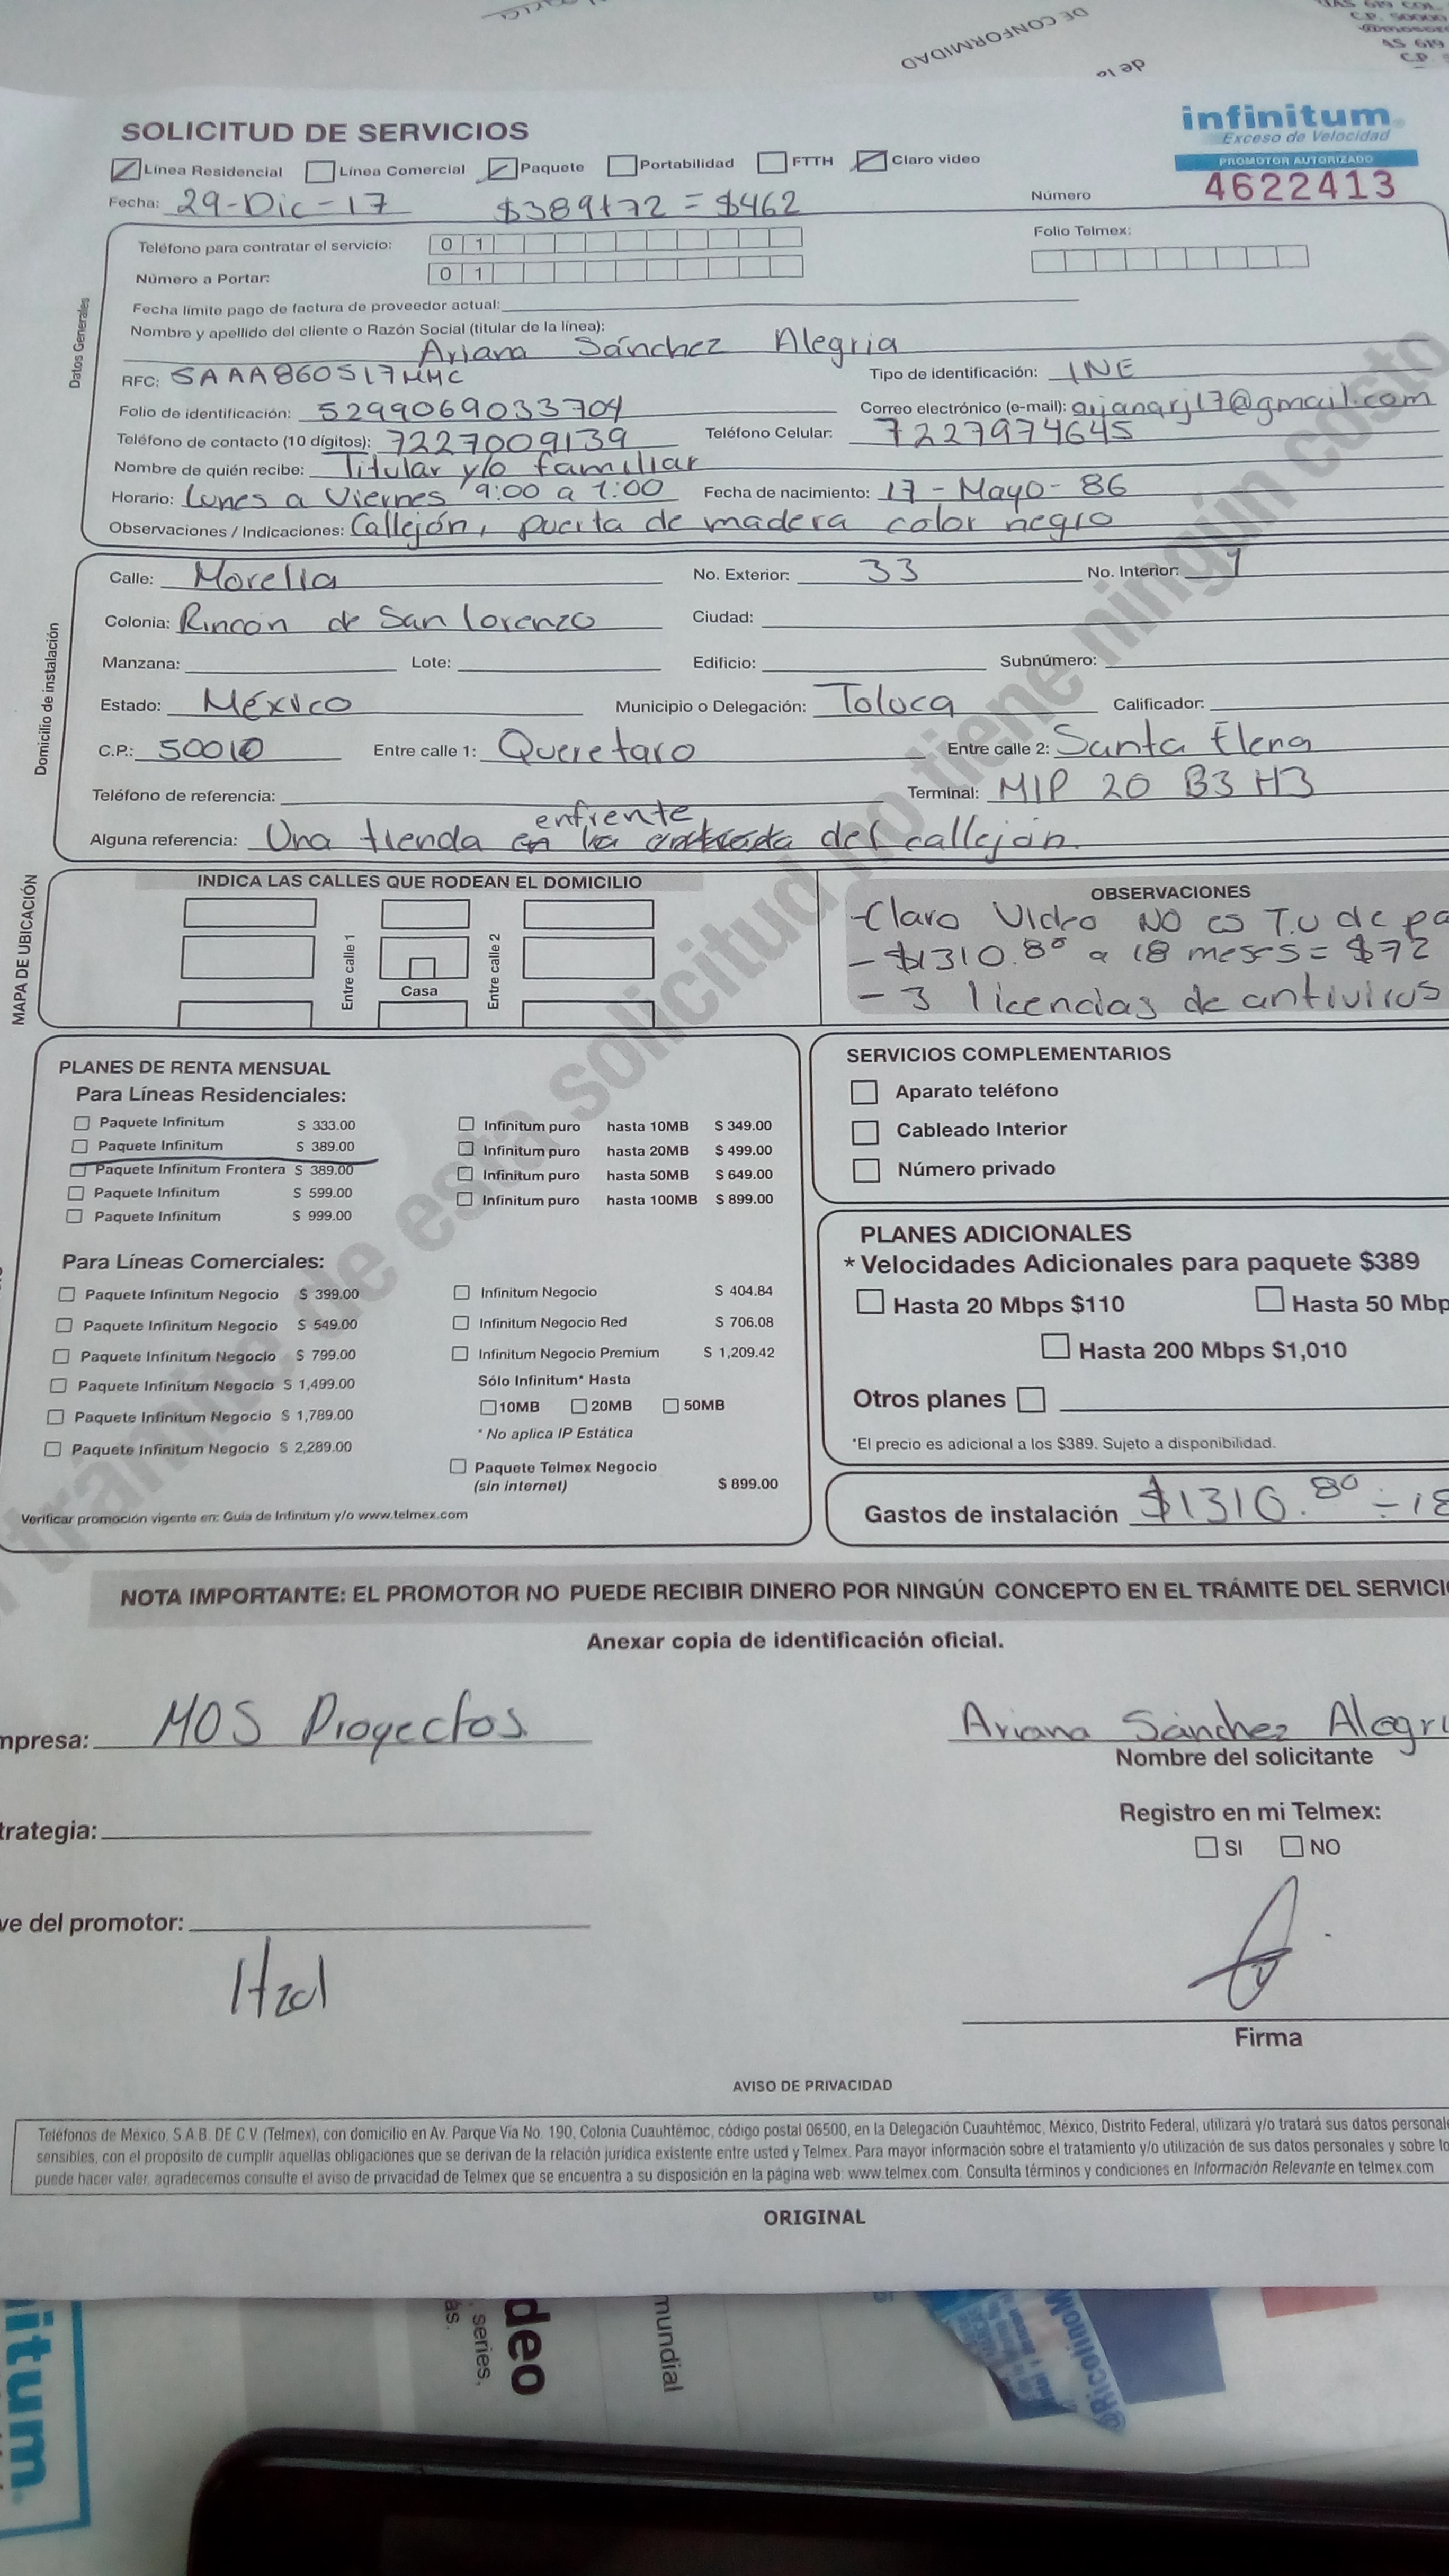 DE CONFORMIDAD
de lo
C.P. 50000
AS 619
C.P.
SOLICITUD DE SERVICIOS
infinitum
Exceso de Velocidad
PROMOTOR AUTORIZADO
Línea Residencial Línea Comercial Paquete Portabilidad FTTH Claro video
Fecha: 29-Dic-17 $389+72=$462 Número 4622413
Datos Generales
Teléfono para contratar el servicio: 0 1 Folio Telmex:
Número a Portar: 0 1
Fecha límite pago de factura de proveedor actual:
Nombre y apellido del cliente o Razón Social (titular de la línea):
Ariana Sánchez Alegria
RFC: SAAA860517MMC Tipo de identificación: INE
Folio de identificación: 5299069033704 Correo electrónico (e-mail): arianarj17@gmail.com
Teléfono de contacto (10 dígitos): 7227009139 Teléfono Celular: 7227974645
Nombre de quién recibe: Titular y/o familiar
Horario: Lunes a Viernes 9:00 a 1:00 Fecha de nacimiento: 17-Mayo-86
Observaciones / Indicaciones: Callejón, puerta de madera color negro
Domicilio de instalación
Calle: Morelia No. Exterior: 33 No. Interior: 1
Colonia: Rincón de San Lorenzo Ciudad:
Manzana: Lote: Edificio: Subnúmero:
Estado: México Municipio o Delegación: Toluca Calificador:
C.P.: 50010 Entre calle 1: Queretaro Entre calle 2: Santa Elena
Teléfono de referencia: Terminal: MIP 20 B3 H3
enfrente
Alguna referencia: Una tienda en la entrada del callejón.
MAPA DE UBICACIÓN
INDICA LAS CALLES QUE RODEAN EL DOMICILIO
Entre calle 1
Casa
Entre calle 2
OBSERVACIONES
-Claro Video NO es T.V de pa
-$1310.80 a 18 meses=$72
-3 licencias de antivirus
PLANES DE RENTA MENSUAL
Para Líneas Residenciales:
Paquete Infinitum $ 333.00 Infinitum puro hasta 10MB $ 349.00
Paquete Infinitum $ 389.00 Infinitum puro hasta 20MB $ 499.00
Paquete Infinitum Frontera $ 389.00 Infinitum puro hasta 50MB $ 649.00
Paquete Infinitum $ 599.00 Infinitum puro hasta 100MB $ 899.00
Paquete Infinitum $ 999.00
Para Líneas Comerciales:
Paquete Infinitum Negocio $ 399.00 Infinitum Negocio $ 404.84
Paquete Infinitum Negocio $ 549.00 Infinitum Negocio Red $ 706.08
Paquete Infinitum Negocio $ 799.00 Infinitum Negocio Premium $ 1,209.42
Paquete Infinitum Negocio $ 1,499.00 Sólo Infinitum* Hasta
Paquete Infinitum Negocio $ 1,789.00 10MB 20MB 50MB
Paquete Infinitum Negocio $ 2,289.00 * No aplica IP Estática
Paquete Telmex Negocio
(sin internet) $ 899.00
Verificar promoción vigente en: Guía de Infinitum y/o www.telmex.com
SERVICIOS COMPLEMENTARIOS
Aparato teléfono
Cableado Interior
Número privado
PLANES ADICIONALES
* Velocidades Adicionales para paquete $389
Hasta 20 Mbps $110 Hasta 50 Mbp
Hasta 200 Mbps $1,010
Otros planes
*El precio es adicional a los $389. Sujeto a disponibilidad.
Gastos de instalación $1310.80 ÷18
trámite de esta solicitud no tiene ningún costo
NOTA IMPORTANTE: EL PROMOTOR NO PUEDE RECIBIR DINERO POR NINGÚN CONCEPTO EN EL TRÁMITE DEL SERVICI
Anexar copia de identificación oficial.
mpresa: MOS Proyectos. Ariana Sánchez Alegri
Nombre del solicitante
trategia: Registro en mi Telmex:
SI NO
ve del promotor:
Firma
AVISO DE PRIVACIDAD
Teléfonos de México, S.A.B. DE C.V. (Telmex), con domicilio en Av. Parque Vía No. 190, Colonia Cuauhtémoc, código postal 06500, en la Delegación Cuauhtémoc, México, Distrito Federal, utilizará y/o tratará sus datos personal
sensibles, con el propósito de cumplir aquellas obligaciones que se derivan de la relación jurídica existente entre usted y Telmex. Para mayor información sobre el tratamiento y/o utilización de sus datos personales y sobre lo
puede hacer valer, agradecemos consulte el aviso de privacidad de Telmex que se encuentra a su disposición en la página web: www.telmex.com. Consulta términos y condiciones en Información Relevante en telmex.com
ORIGINAL
itum.
ás.
series,
deo
mundial
@RicolinoM